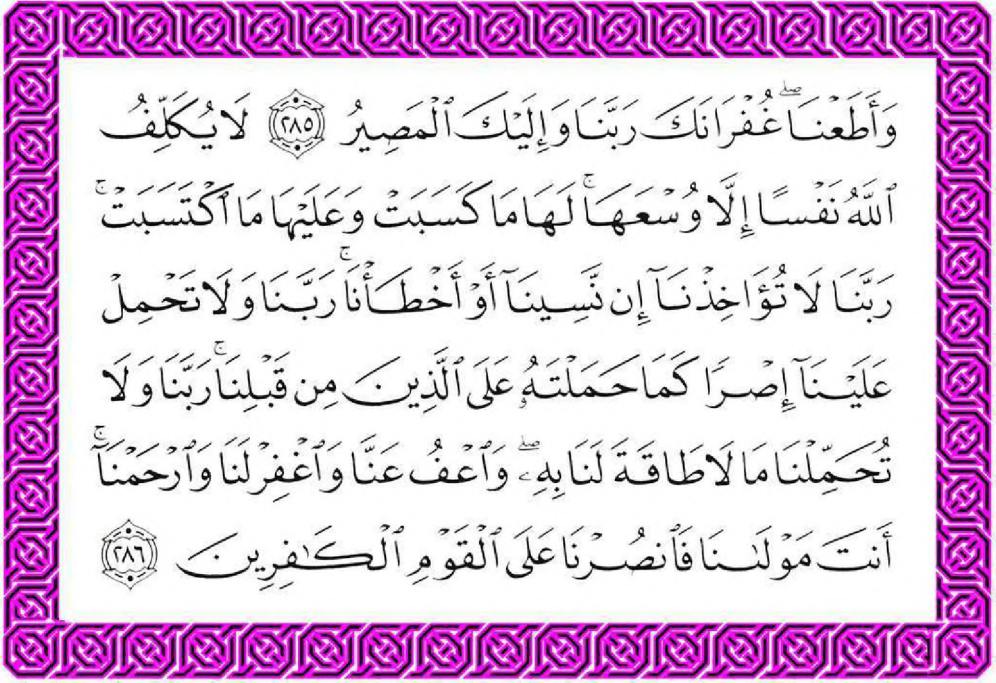 وَأَطَعۡنَاۖ غُفۡرَانَكَ رَبَّنَا وَإِلَيۡكَ ٱلۡمَصِيرُ ٢٨٥ لَا يُكَلِّفُ
ٱللَّهُ نَفۡسًا إِلَّا وُسۡعَهَاۚ لَهَا مَا كَسَبَتۡ وَعَلَيۡهَا مَا ٱكۡتَسَبَتۡۚ
رَبَّنَا لَا تُؤَاخِذۡنَآ إِن نَّسِينَآ أَوۡ أَخۡطَأۡنَاۚ رَبَّنَا وَلَا تَحۡمِلۡ
عَلَيۡنَآ إِصۡرًا كَمَا حَمَلۡتَهُۥ عَلَى ٱلَّذِينَ مِن قَبۡلِنَاۚ رَبَّنَا وَلَا
تُحَمِّلۡنَا مَا لَا طَاقَةَ لَنَا بِهِۦۖ وَٱعۡفُ عَنَّا وَٱغۡفِرۡ لَنَا وَٱرۡحَمۡنَآۚ
أَنتَ مَوۡلَىٰنَا فَٱنصُرۡنَا عَلَى ٱلۡقَوۡمِ ٱلۡكَٰفِرِينَ ٢٨٦